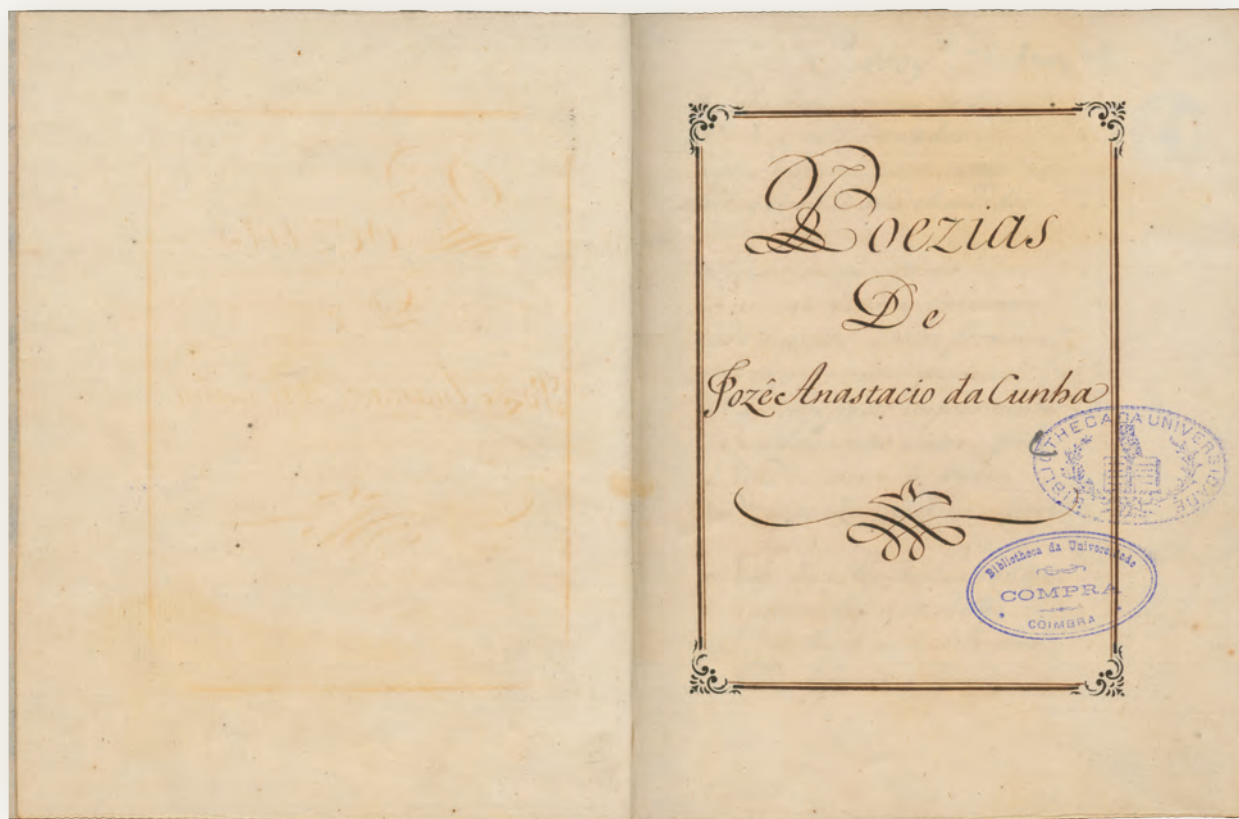 Poezias
De
Jozê Anastacio da Cunha
BIBLIOTHECA DA UNIVERSIDADE
Bibliotheca da Universidade
COMPRA
COIMBRA